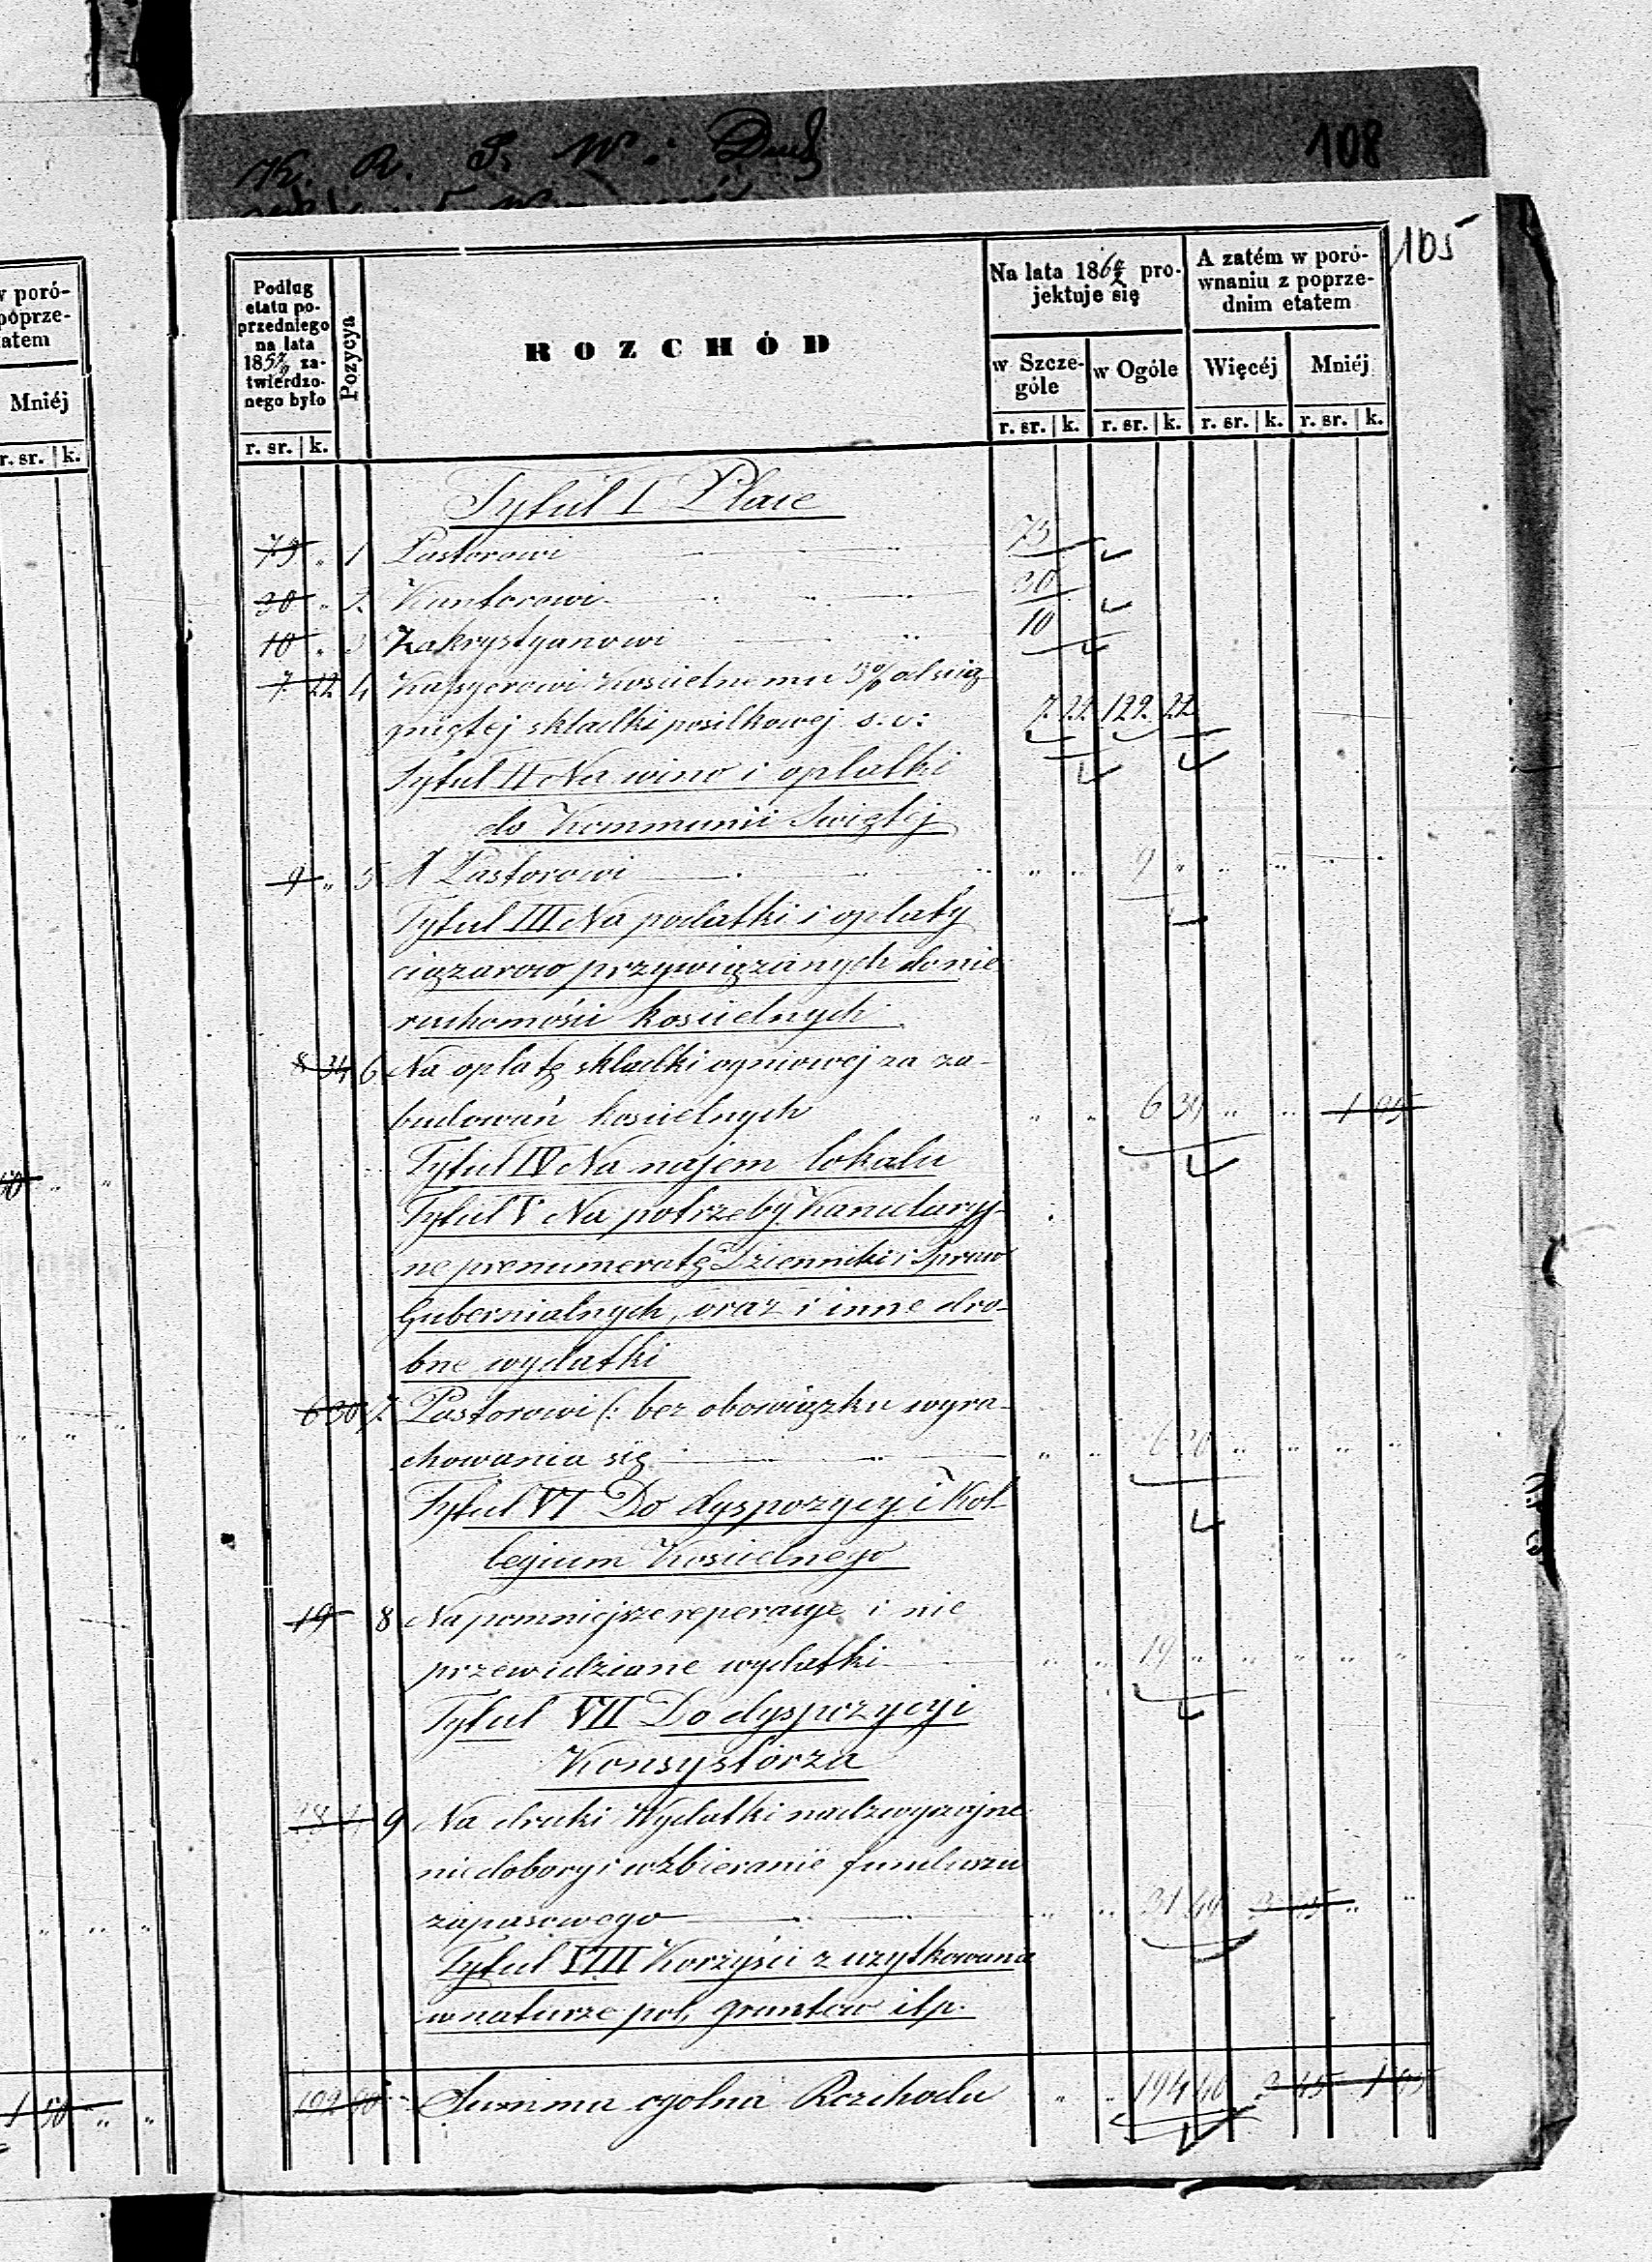 K. R. S. W. i Duch
108
105
w poró-
poprze-
atem
Mniéj
r. sr. k.
1 50 " "
Podług etatu poprzedniego na lata 1857/9 zatwierdzonego było
r. sr. k.
Pozycya
ROZCHÓD
Na lata 1860/2 projektuje się
w Szczególe
w Ogóle
r. sr. k. r. sr. k.
A zatém w porównaniu z poprzednim etatem
Więcéj Mniéj
r. sr. k. r. sr. k.
Tytuł I Płace
75 " 1 Pastorowi 75
30 " 2 Kantorowi 30
10 " 3 Zakrystyanowi 10
7 22 4 Kassyerowi Kościelnemu 5% od ściąg
niętej składki posiłkowej s. v: 7. 22 122. 22
Tytuł II Na wino i opłatki
do Kommunii Swiętej
9 " 5 Pastorowi " " 9 " " " " "
Tytuł III Na podatki i opłaty
ciężarow przywiązanych do nie
ruchomości kościelnych
8 34 6 Na opłatę składki ogniowej za za-
budowań kościelnych " " 6 39 " " 1 95
Tytuł IV Na najem lokalu
Tytuł V Na potrzeby Kancelaryj-
ne prenumeratę Dzienniki i Spraw
Gubernialnych, oraz i inne dro-
bne wydatki
6 30 7. Pastorowi (: bez obowiązku wyra-
chowania się " " 6 30 " " " "
Tytuł VI Do dyspozycyi Kol-
legium Kościelnego
19 8 Na pomniejsze reperacye i nie
przewidziane wydatki " " 19 " " " " "
Tytuł VII Do dyspozycyi
Konsystorza
9 Na druki Wydatki nadzwyczajne
niedobory i wzbieranie funduszu
zapasowego " " 31 49 " "
Tytuł VIII Korzyści z uzytkowania
w naturze pol, gruntow itp.
192 90 Summa ogolna Rozchodu " " 194 40 3 45 1 95